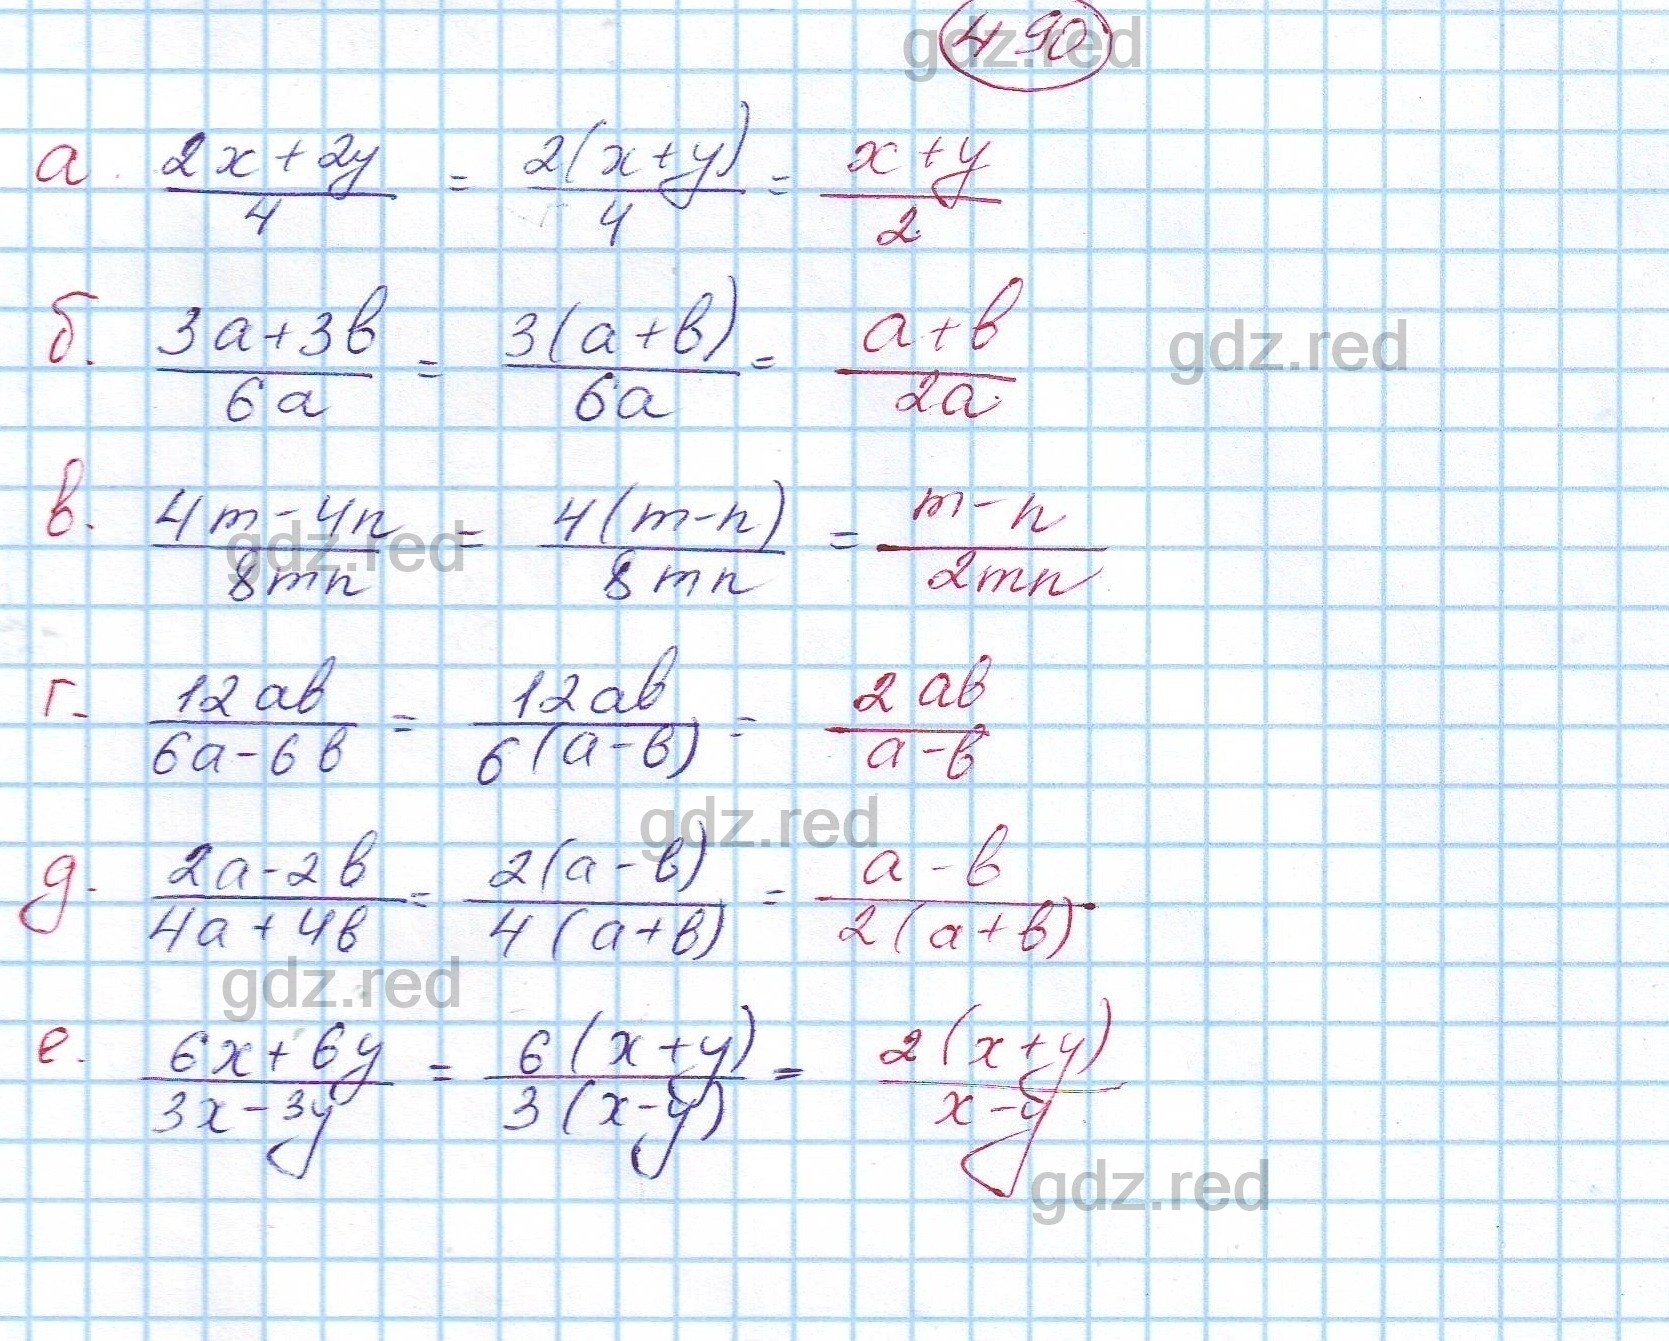 490
а. (2x+2y)/4 = 2(x+y)/4 = (x+y)/2
б. (3a+3b)/6a = 3(a+b)/6a = (a+b)/2a
gdz.red
в. (4m-4n)/8mn = 4(m-n)/8mn = (m-n)/2mn
г. 12ab/(6a-6b) = 12ab/6(a-b) = 2ab/(a-b)
gdz.red
д. (2a-2b)/(4a+4b) = 2(a-b)/4(a+b) = (a-b)/2(a+b)
gdz.red
е. (6x+6y)/(3x-3y) = 6(x+y)/3(x-y) = 2(x+y)/(x-y)
gdz.red